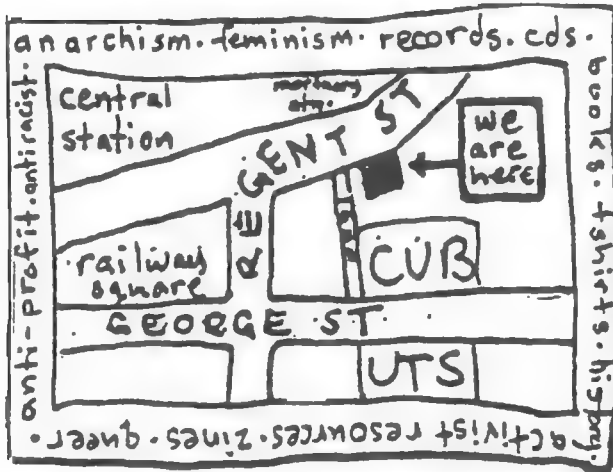 anarchism. feminism. records. cds.
books. tshirts. hispry.
activist resources. zines. queer.
anti-profit. antiracist.
central
station
mortuary
stn.
REGENT ST
we
are
here
railway
square
CUB
GEORGE ST
UTS